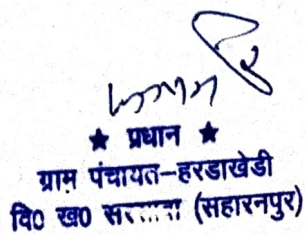 ★ प्रधान ★
ग्राम पंचायत-हरडाखेडी
वि0 ख0 (सहारनपुर)